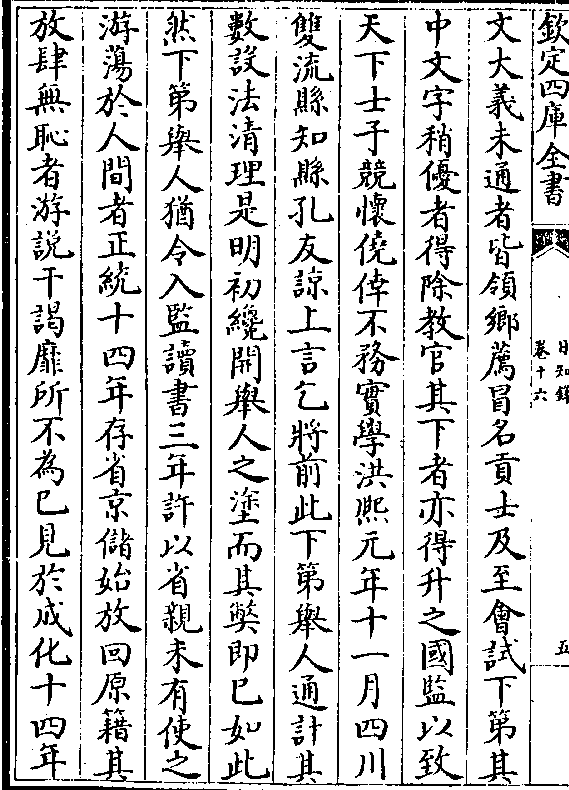 欽定四庫全書
日知錄
卷十六
五
文大義未通者皆領鄉薦冒名貢士及至會試下第其
中文字稍優者得除教官其下者亦得升之國監以致
天下士子競懷僥倖不務實學洪熙元年十一月四川
雙流縣知縣孔友諒上言乞將前此下第舉人通計其
數設法清理是明初纔開舉人之塗而其弊即已如此
然下第舉人猶令入監讀書三年許以省親未有使之
游蕩於人間者正統十四年存省京儲始放回原籍其
放肆無恥者游說干謁靡所不為已見於成化十四年